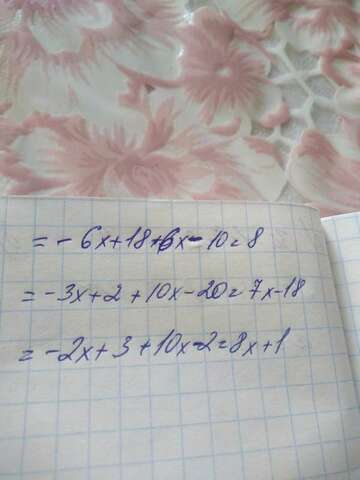 = - 6x+18+6x-10=8
= -3x+2+10x-20=7x-18
= -2x+3+10x-2=8x+1